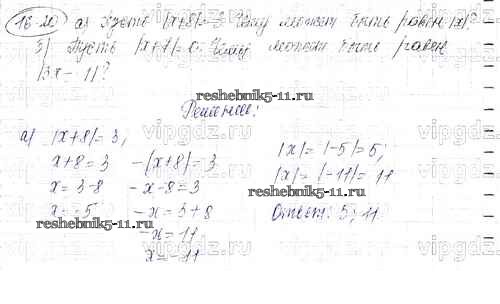 16-20 а) Пусть |x+8|=3. Чему может быть равен |x|.
б) Пусть |x+7|=0. Чему может быть равен
|3x-11|?
reshebnik5-11.ru
Решение:
а) |x+8|=3,
x+8=3 -(x+8)=3
x=3-8 -x-8=3
x=-5 -x=3+8
-x=11
x=-11
|x|=|-5|=5;
|x|=|-11|=11
Ответ: 5; 11.
reshebnik5-11.ru
reshebnik5-11.ru
vipgdz